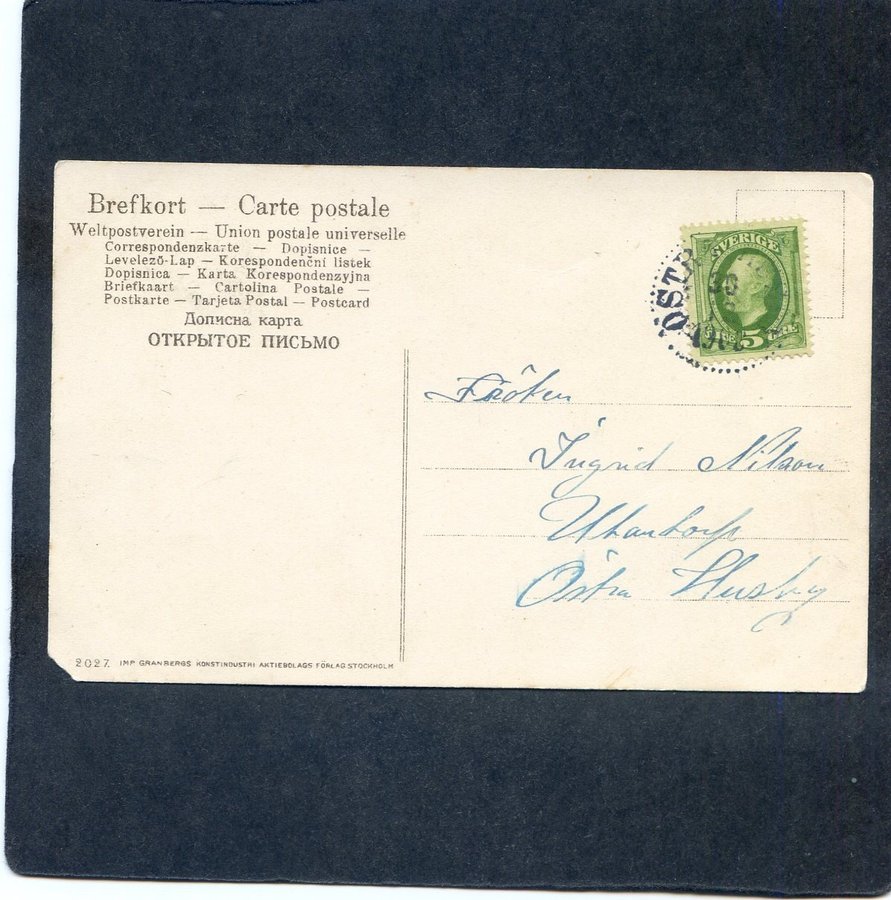 Brefkort — Carte postale
Weltpostverein — Union postale universelle
Correspondenzkarte — Dopisnice —
Levelező-Lap — Korespondenční listek
Dopisnica — Karta Korespondenzyjna
Briefkaart — Cartolina Postale —
Postkarte — Tarjeta Postal — Postcard
Дописна карта
ОТКРЫТОЕ ПИСЬМО
SVERIGE
5 ÖRE
Fröken
Ingrid Nilson
Utantorp
Östra Husby
2027. IMP GRANBERGS KONSTINDUSTRI AKTIEBOLAGS FÖRLAG STOCKHOLM